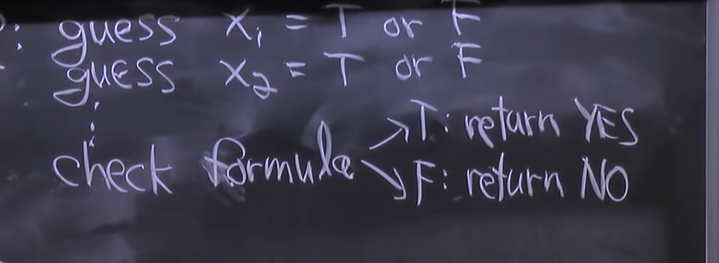 : guess x₁ = T or F
guess x₂ = T or F
⋮
check formula ↗ T: return YES
↘ F: return NO